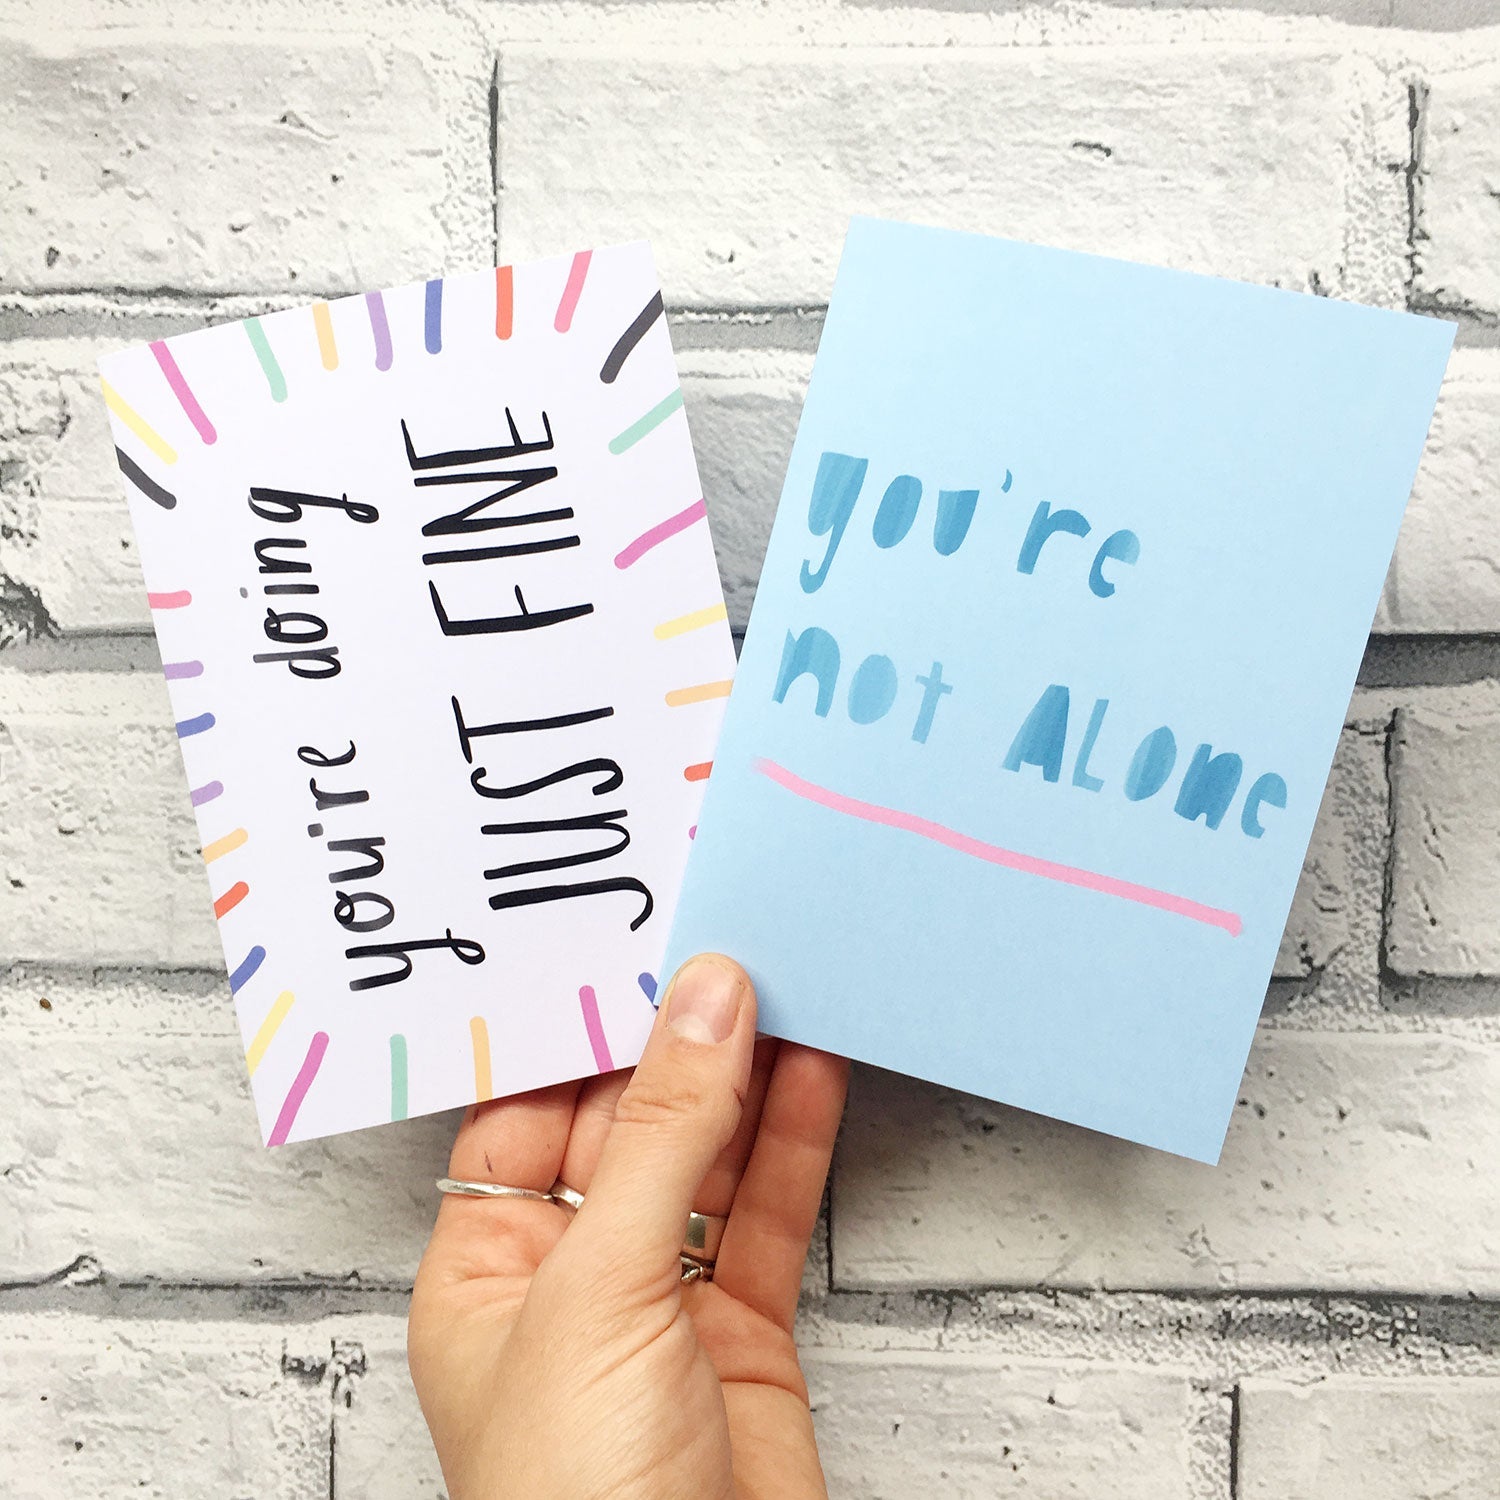 you're doing
JUST FINE
you're
not ALONE